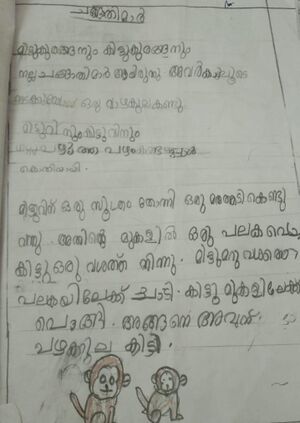 ചങ്ങാതിമാർ
മിട്ടുകുരങ്ങനും കിട്ടുകുരങ്ങനും
നല്ല ചങ്ങാതിമാർ ആയിരുന്നു അവർ
ഒരു വാഴകുല കണ്ടു
മിട്ടുവിനും കിട്ടുവിനും
പഴുത്ത പഴം
കൊതിയായി.
മിട്ടുവിന് ഒരു സൂത്രം തോന്നി ഒരു കൊണ്ടു
വന്നു അതിന്റെ മുകളിൽ ഒരു പലക വെ
കിട്ടു ഒരു വശത്ത് നിന്നു. മിട്ടു മറു വശത്തെ
പലകയിലേക്ക് ചാടി. കിട്ടു മുകളിലേക്ക്
പൊങ്ങി. അങ്ങനെ അവർക്ക്
പഴക്കുല കിട്ടി.